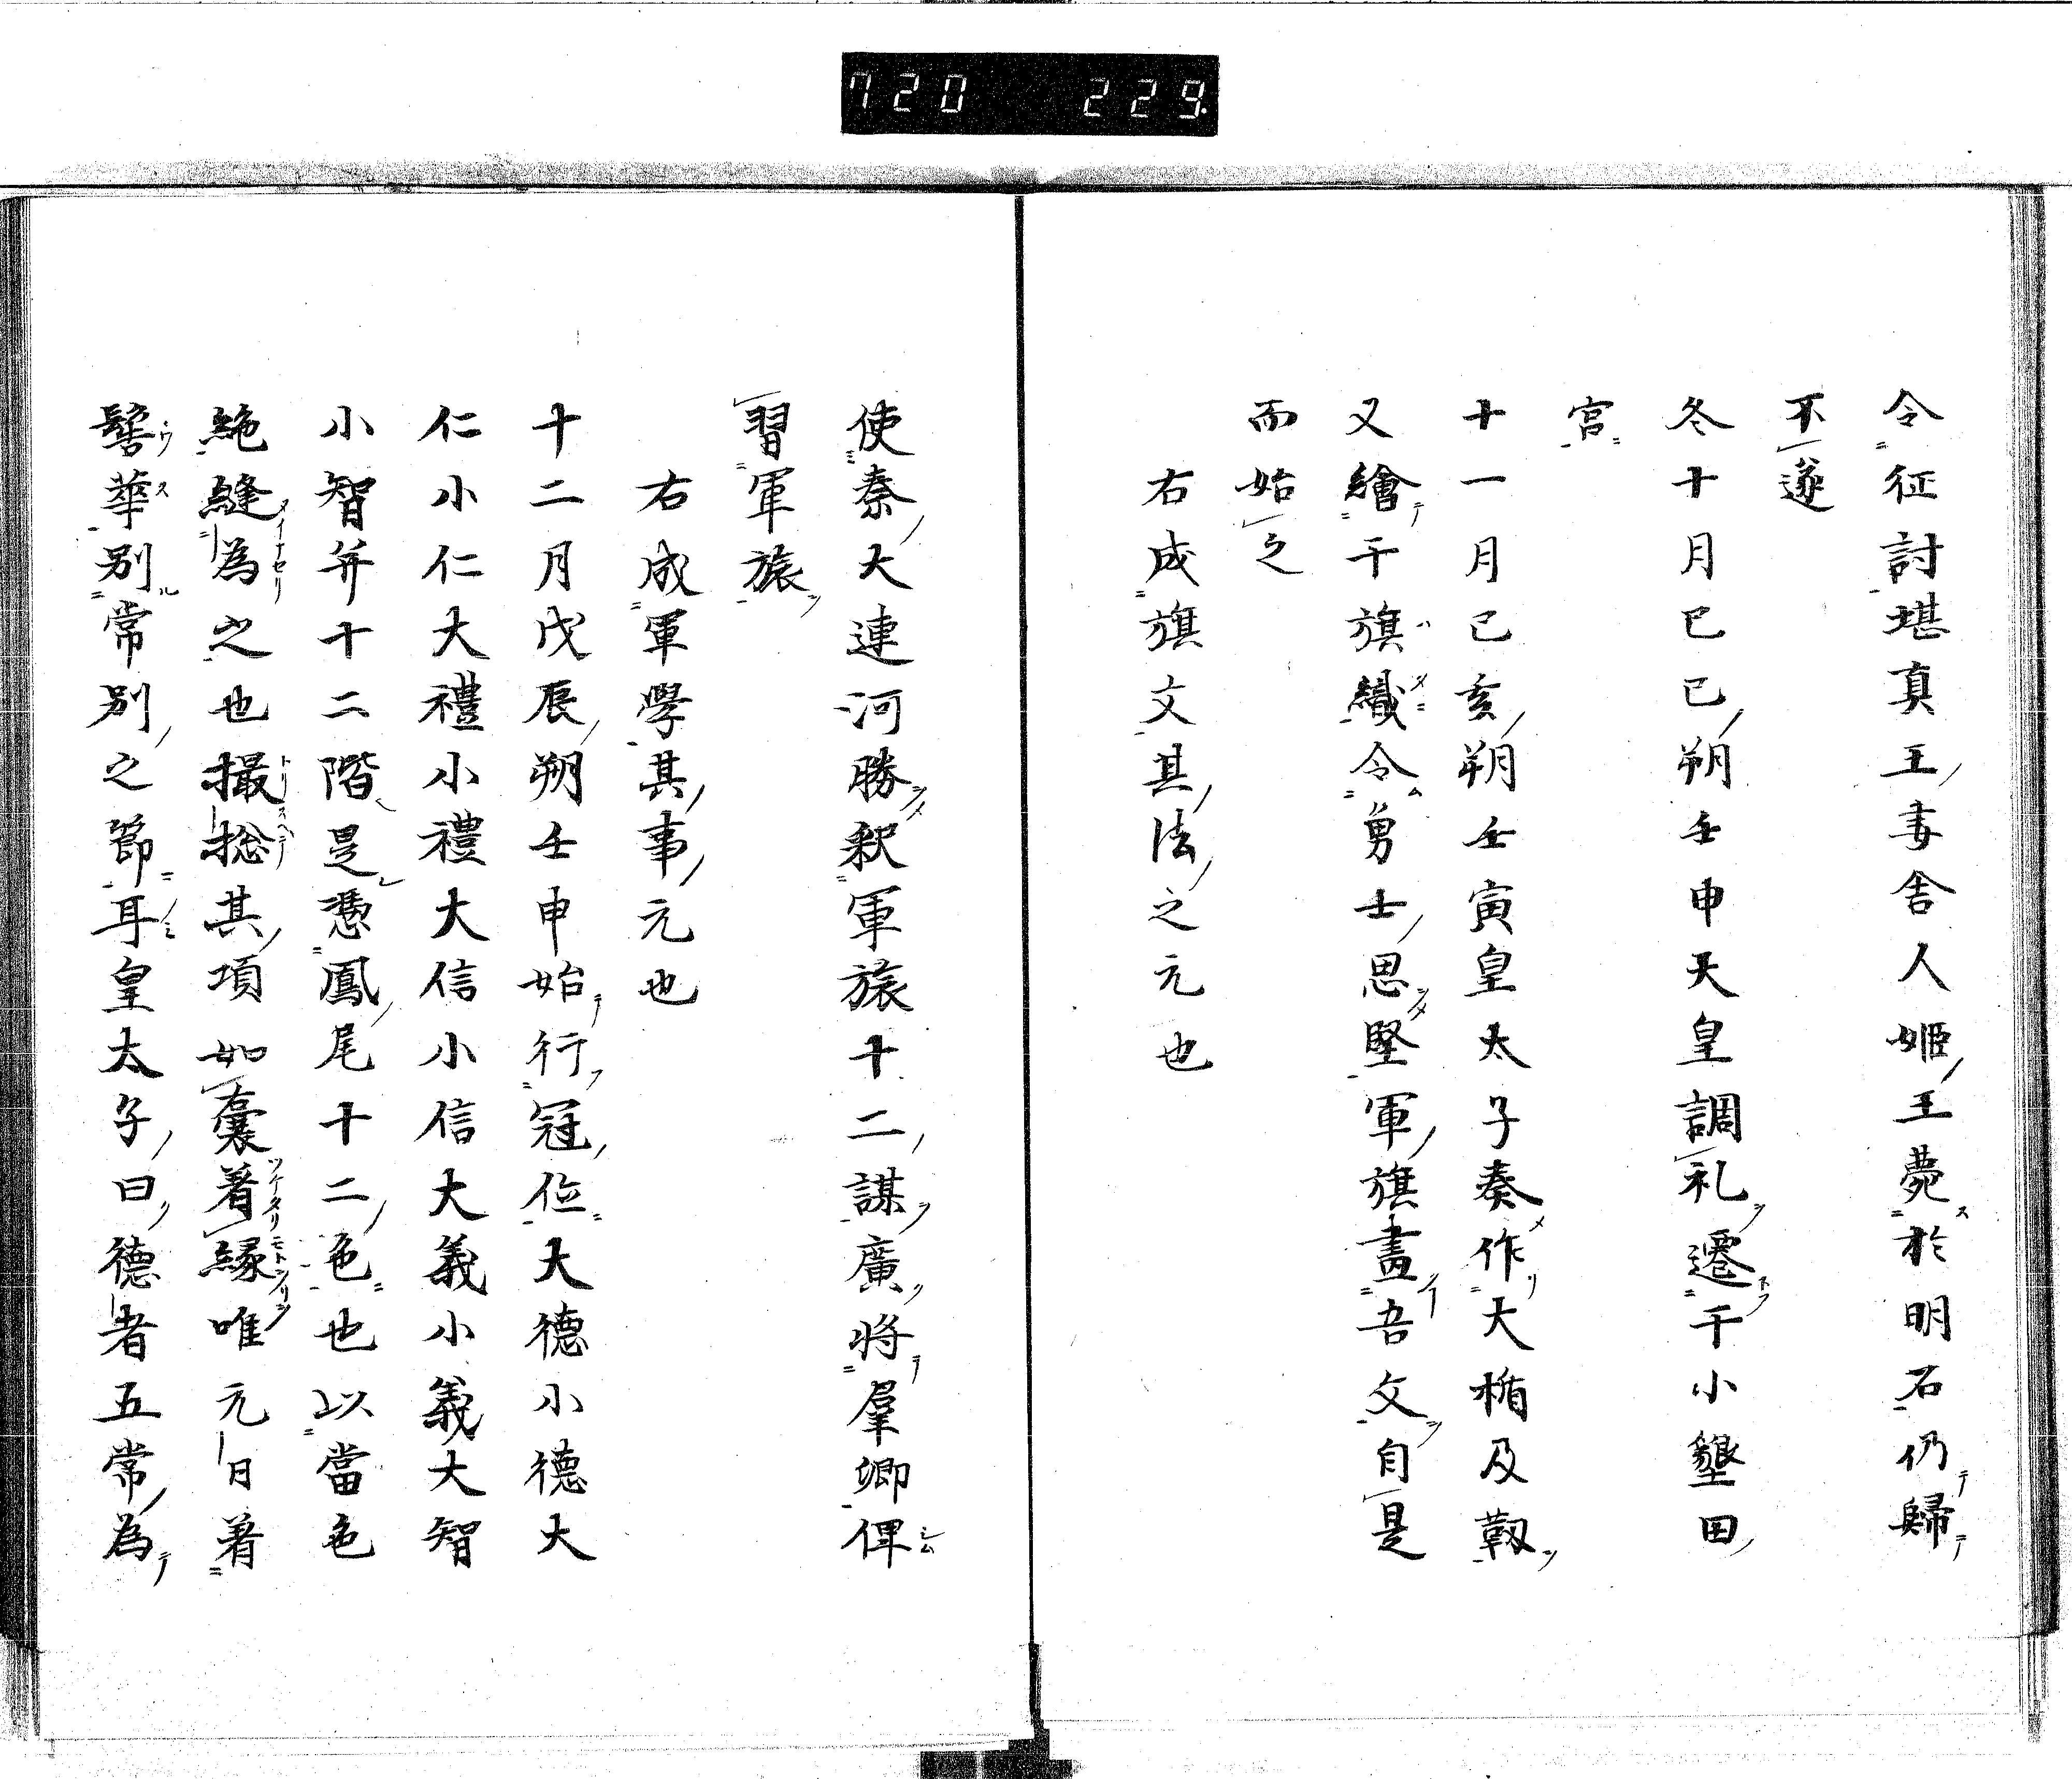 720 229.
令征討堪真王妻舎人姬王薨於明石仍歸
不遂
冬十月己巳朔壬申天皇調礼遷于小墾田
宮
十一月己亥朔壬寅皇太子奏作大楯及靫
又繪于旗織令勇士思堅軍旗畫吾文自是
而始之
右成旗文其法之元也
使秦大連河勝釈軍旅十二謀廣将羣卿俾
習軍旅
右成軍學其事元也
十二月戊辰朔壬申始行冠位大德小德大
仁小仁大禮小禮大信小信大義小義大智
小智并十二階是憑鳳尾十二色也以當色
絁縫為之也撮捴其項如囊着縁唯元日着
髻華別常別之節耳皇太子曰德者五常為